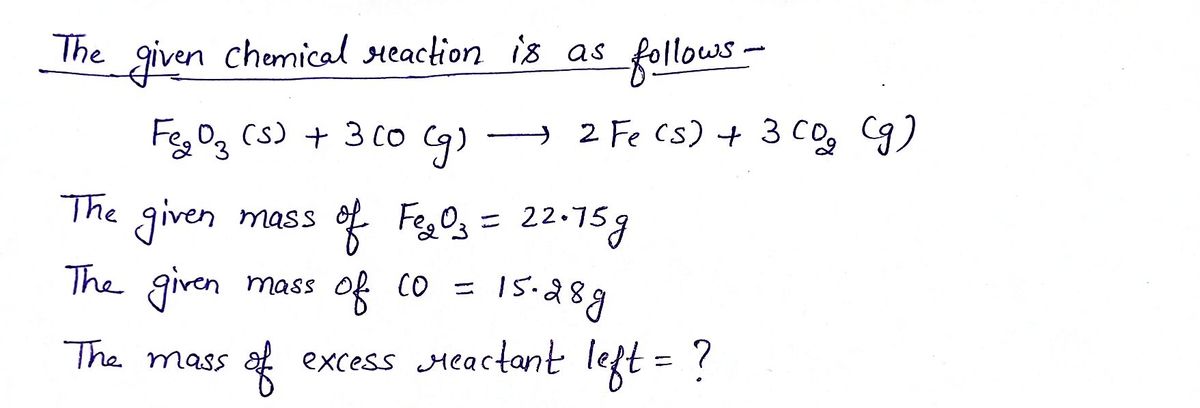 The given chemical reaction is as follows -
Fe₂O₃ (s) + 3 CO (g) ⟶ 2 Fe (s) + 3 CO₂ (g)
The given mass of Fe₂O₃ = 22.75g
The given mass of CO = 15.28g
The mass of excess reactant left = ?